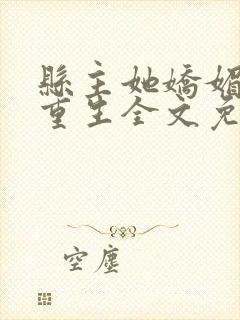 縣主她嬌媚
重生全文免
空塵